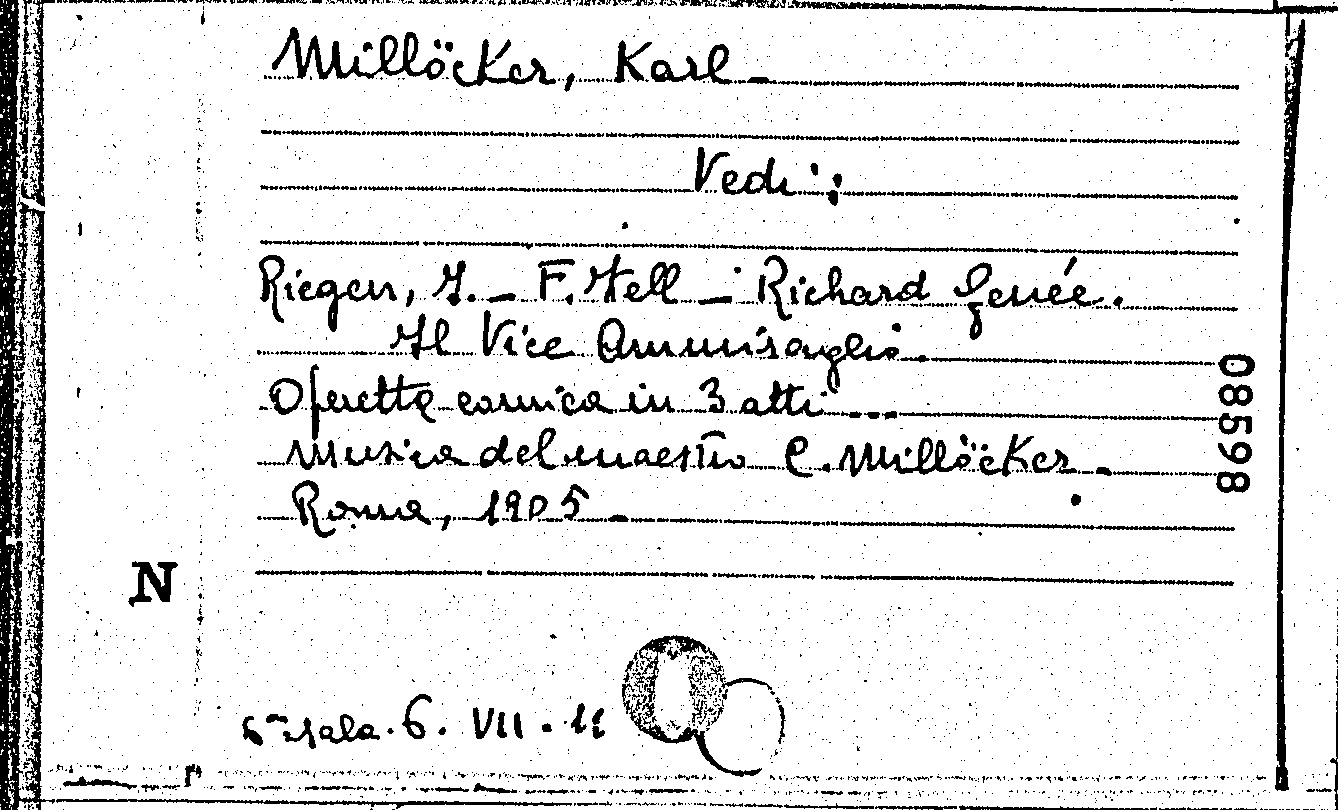 Millöcker, Karl -
Vedi:
Riegen, I. - F. Zell - Richard Genée.
Il Vice Ammiraglio.
Operetta comica in 3 atti ...
Musica del maestro C. Millöcker -
Roma, 1905 -
08598
N
6ª sala. 6. VII. 11